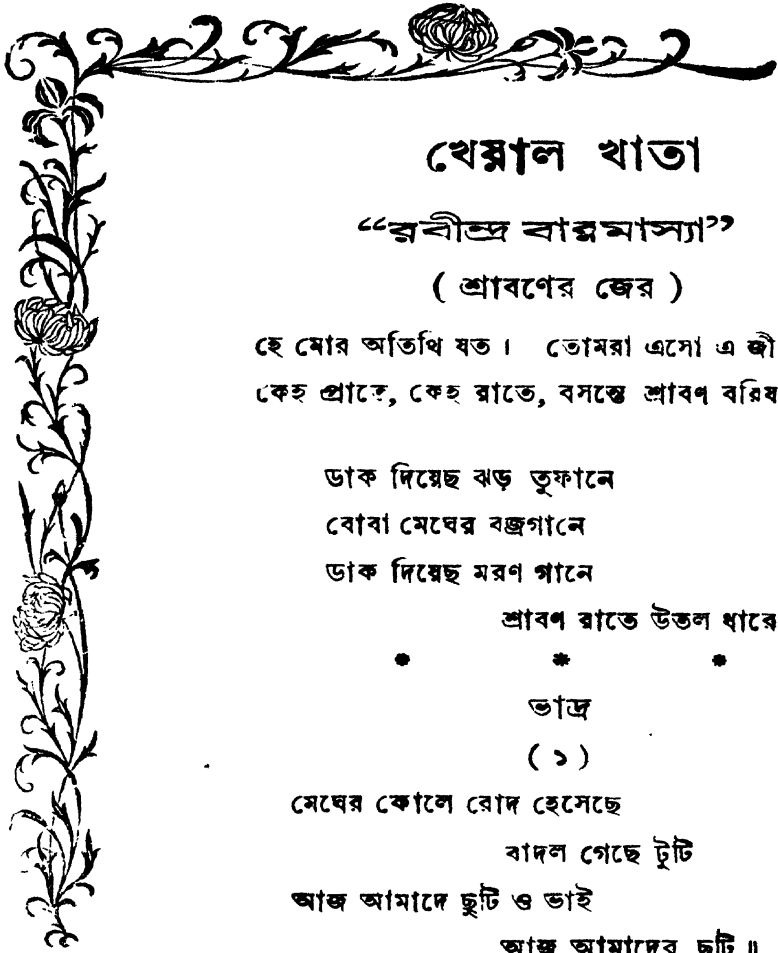 খেয়াল খাতা
“রবীন্দ্র বারমাস্যা”
( শ্রাবণের জের )
হে মোর অতিথি যত । তোমরা এসো এ জী
কেহ প্রাতে, কেহ রাতে, বসন্তে শ্রাবণ বরিষ
ডাক দিয়েছ ঝড় তুফানে
বোবা মেঘের বজ্রগানে
ডাক দিয়েছ মরণ পানে
শ্রাবণ রাতে উতল ধারে
* * *
ভাদ্র
( ১ )
মেঘের কোলে রোদ হেসেছে
বাদল গেছে টুটি
আজ আমাদে ছুটি ও ভাই
আজ আমাদের ছুটি ॥